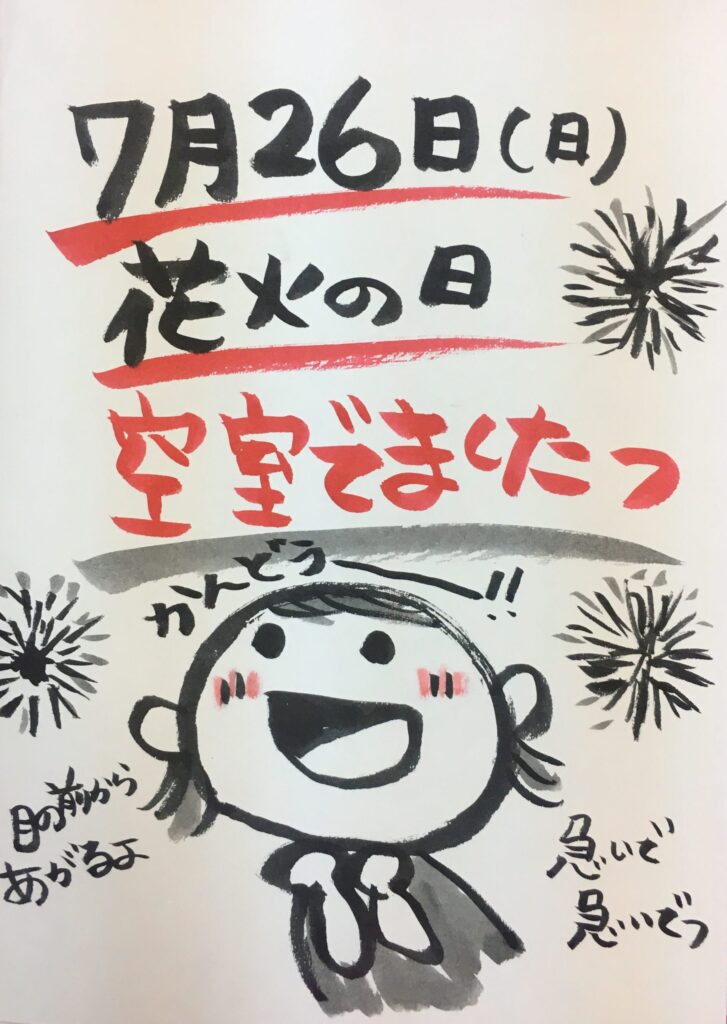 7月26日(日)
花火の日
空室でましたっ
かんどうー!!
目の前から
あがるよ
急いで
急いでっ